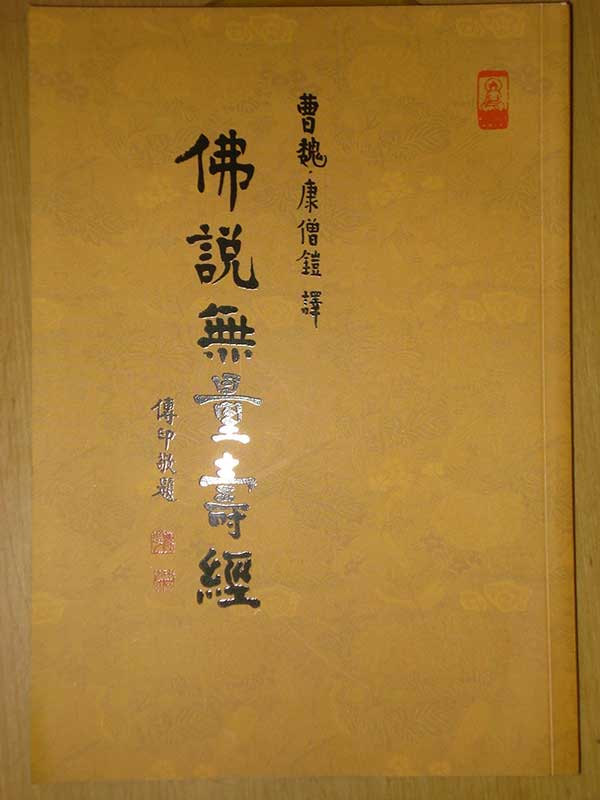 曹魏·康僧鎧 譯
佛說無量壽經
傳印敬題